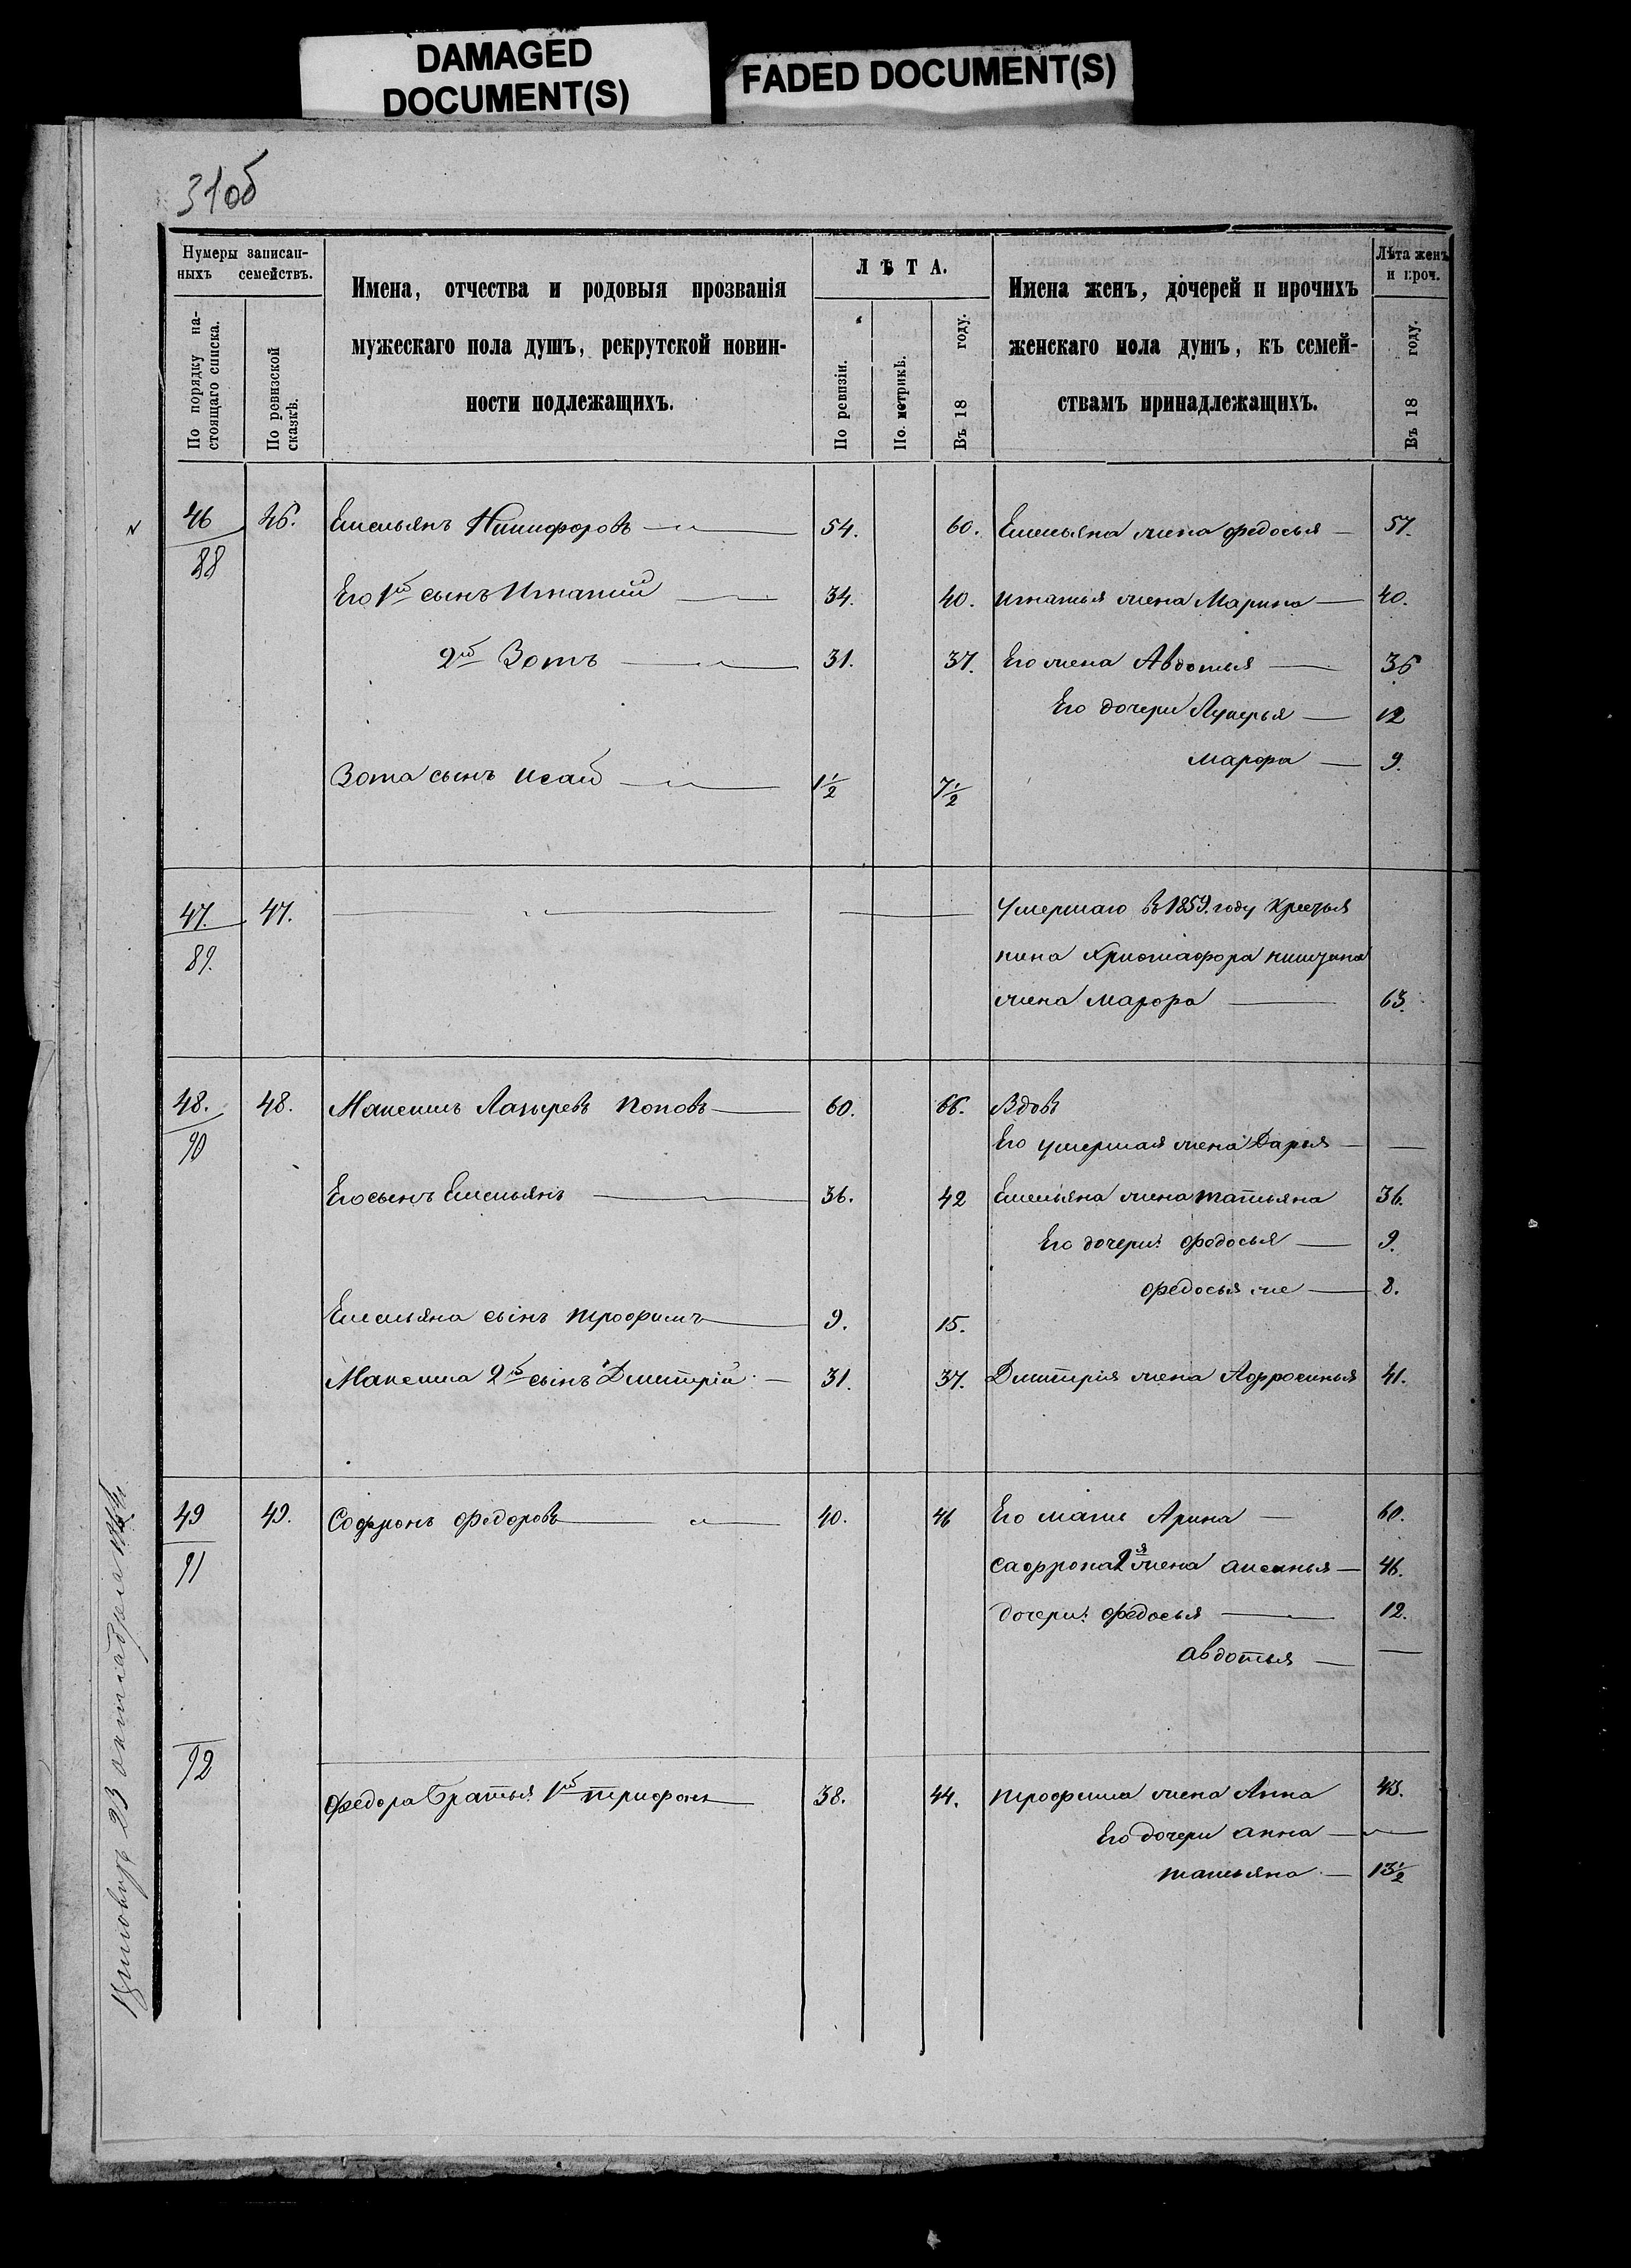 DAMAGED
DOCUMENT(S)
FADED DOCUMENT(S)
31об
Нумеры записан-
ныхъ семействъ.
По порядку на-
стоящаго списка.
По ревизской
сказкѣ.
Имена, отчества и родовыя прозванія
мужескаго пола душъ, рекрутской повин-
ности подлежащихъ.
ЛѢТА.
По ревизіи.
По метрикѣ.
Въ 18 году.
Имена женъ, дочерей и прочихъ
женскаго пола душъ, къ семей-
ствамъ принадлежащихъ.
Лѣта женъ
и проч.
Въ 18 году.
46 46. Емельянъ Никифоровъ 54. 60. Емельяна жена федосья 57.
88
Его 1й сынъ Игнатий 34. 40. Игнатья жена Марина 40.
2й Зотъ 31. 37. Его жена Авдотья 36
Его дочери Лукерья 12
Марфа 9.
Зота сынъ Исай 1½ 7½
47. 47. Умершаго въ 1859. году Крестья
89. нина Христафора
жена Марфа 63.
48. 48. Максимъ Лазыревъ Поповъ 60. 66. Вдовъ
90 Его умершая жена Дарья
Его сынъ Емельянъ 36. 42 Емельяна жена татьяна 36.
Его дочери: федосья 9.
федосья же 8.
Емельяна сынъ трофимъ 9. 15.
Максима 2й сынъ Дмитрій 31. 37. Дмитрія жена Афросинья 41.
49 49. Софронъ федоровъ 40. 46 Его мать Арина 60.
91 Сафрона 2я жена аксинья 46.
дочери: федосья 12.
авдотья
92
Федора Братья 1й трифонъ 38. 44. трофима жена Анна 43.
Его дочери анна
татьяна 13½
23